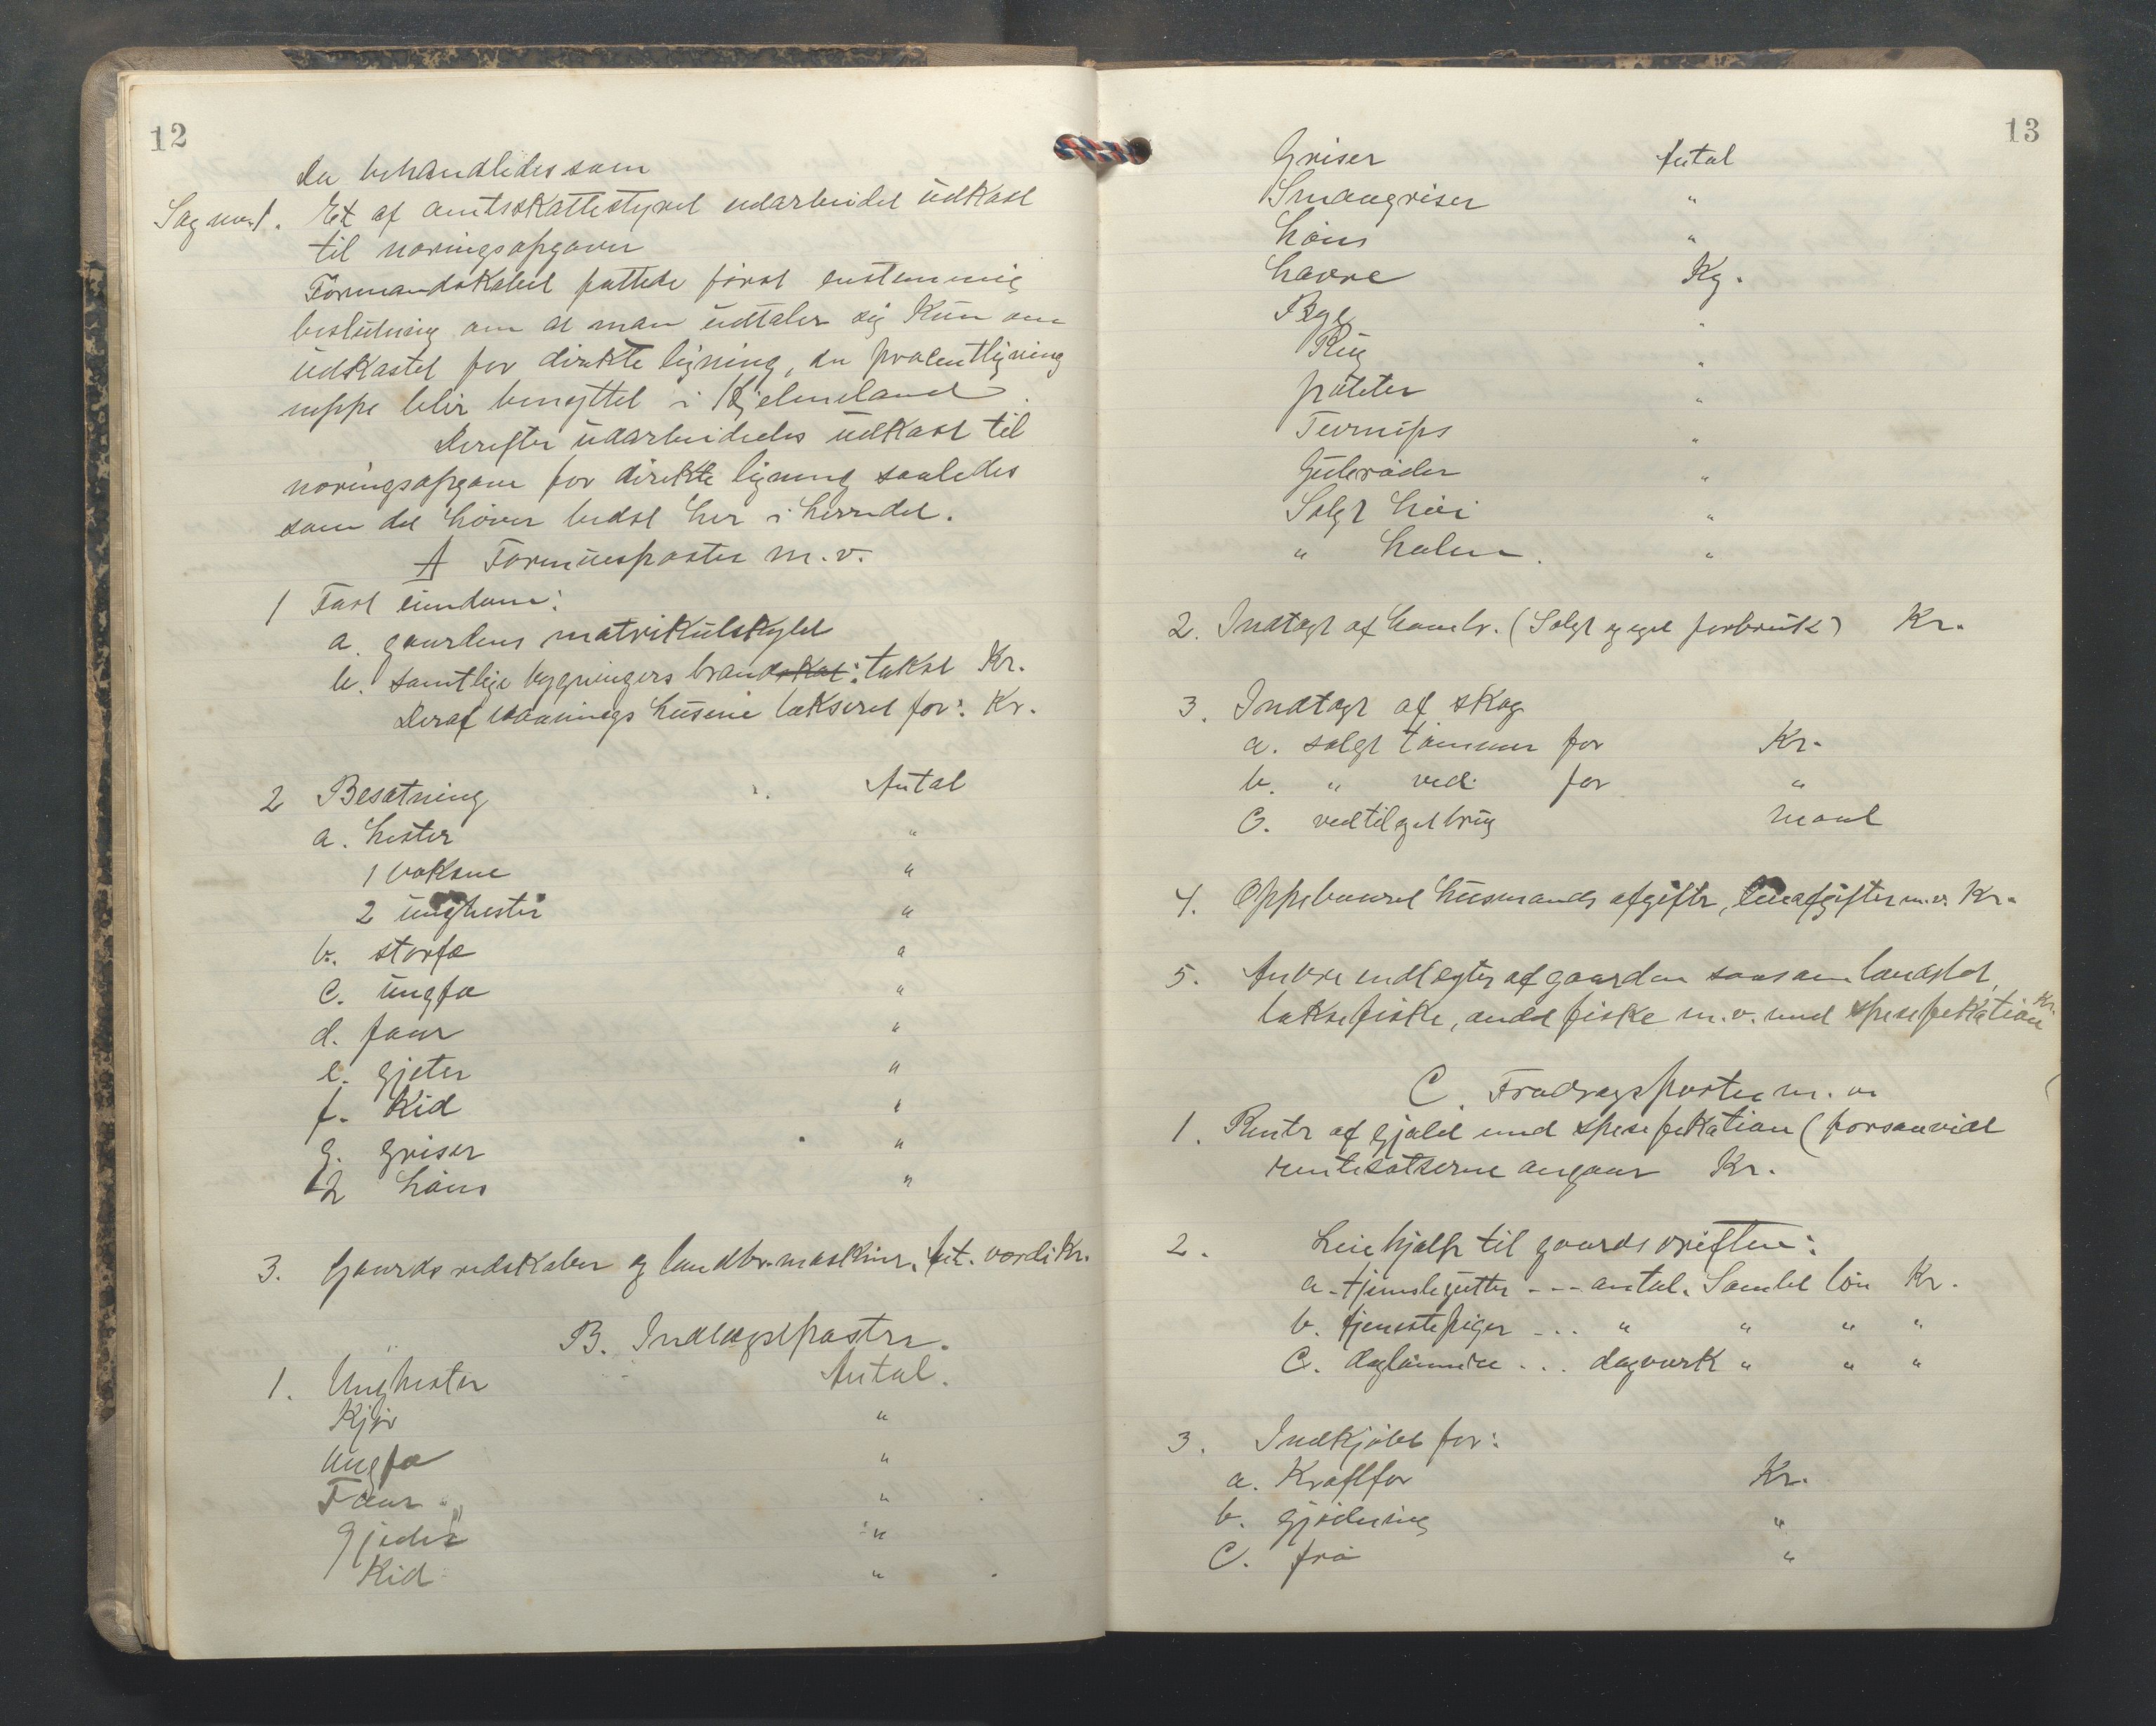 12
Der behandledes som
Sag no. 1. Et af amtsskattestyret udarbeidet udkast
til næringsopgaver
Formandskabet fattede først enstemmig
beslutning om at man udtaler sig kun om
udkastet for direkte ligning, da procentligning
neppe blir benyttet i Hjelmeland.
Derefter udarbeidedes udkast til
næringsopgave for direkte ligning saaledes
som det høver bedst her i herredet.
A Formuesposter m.v.
1 Fast eiendom:
a. gaardens matrikulskyld
b. samtlige bygningers brandskat: takst Kr.
Deraf vaanings husene takseret for: Kr.
2 Besætning Antal
a. hester "
1 voksne "
2 unghester "
b. storfæ "
c. ungfæ "
d. faar "
e. gjeter "
f. kid "
g. griser "
h høns "
3. Gaards redskaber og landbr. maskiner. Ant. værdi Kr.
B. Indtægtsposter.
1. Unghester Antal.
Kjør "
Ungfæ "
Faar "
Gjeder "
Kid "
13
Griser Antal
Smaagriser "
Høns "
Havre Kg.
Byg "
Rug "
poteter "
Turnips "
Gulerøder "
Solgt høi "
" halm. "
2. Indtægt af havebr. (Solgt og eget forbruk) Kr.
3. Indtægt af skog
a. solgt tømmer for Kr.
b. " ved for "
c. ved til eget brug maal
4. Oppebaaret husmands afgifter, leieafgifter m.v. Kr.
5. Andre indtægter af gaarden saasom landslot,
laksefiske, andet fiske m.v. med spesefikation Kr.
C. Fradragsposter m.v.
1. Renter af gjæld med spesefikation (forsaavidt
rentesatserne angaar Kr.
2. Leiehjælp til gaardsdriften:
a. tjenstegutter --- antal. Samlet løn Kr.
b. tjenestepiger ... " " " "
c. daglønnere ... dagverk " " "
3. Indkjøbt for:
a. Kraftfor Kr.
b. gjødning "
c. frø "